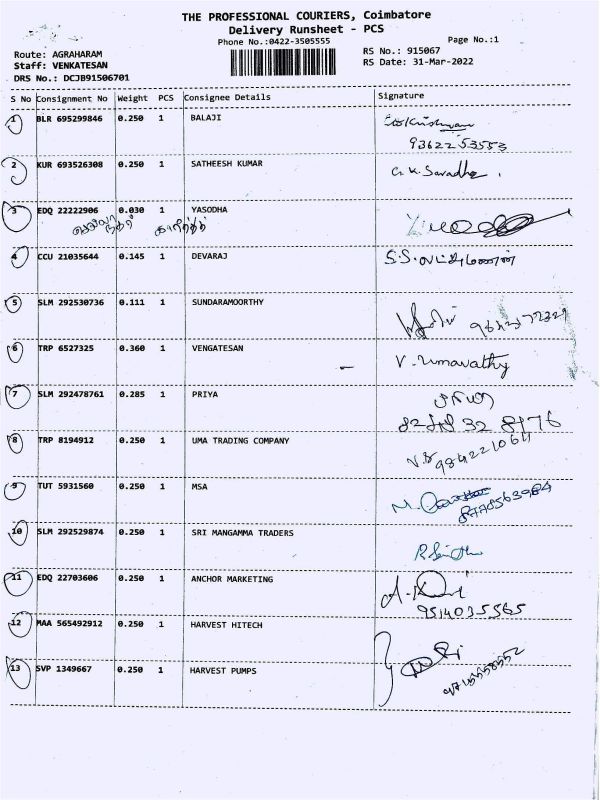 THE PROFESSIONAL COURIERS, Coimbatore
Delivery Runsheet - PCS
Phone No.:0422-3505555
Page No.:1
Route: AGRAHARAM
RS No.: 915067
Staff: VENKATESAN
RS Date: 31-Mar-2022
DRS No.: DCJB91506701
S No Consignment No Weight PCS Consignee Details Signature
1 BLR 695299846 0.250 1 BALAJI
9362253553
2 KUR 693526308 0.250 1 SATHEESH KUMAR
3 EDQ 22222906 0.030 1 YASODHA
4 CCU 21035644 0.145 1 DEVARAJ S.S.லட்சுமணன்
5 SLM 292530736 0.111 1 SUNDARAMOORTHY
6 TRP 6527325 0.360 1 VENGATESAN V. Umavathy
7 SLM 292478761 0.285 1 PRIYA பிரியா
8 TRP 8194912 0.250 1 UMA TRADING COMPANY
9842210611
9 TUT 5931560 0.250 1 MSA
10 SLM 292529874 0.250 1 SRI MANGAMMA TRADERS
11 EDQ 22703606 0.250 1 ANCHOR MARKETING
9514035565
12 MAA 565492912 0.250 1 HARVEST HITECH
13 SVP 1349667 0.250 1 HARVEST PUMPS